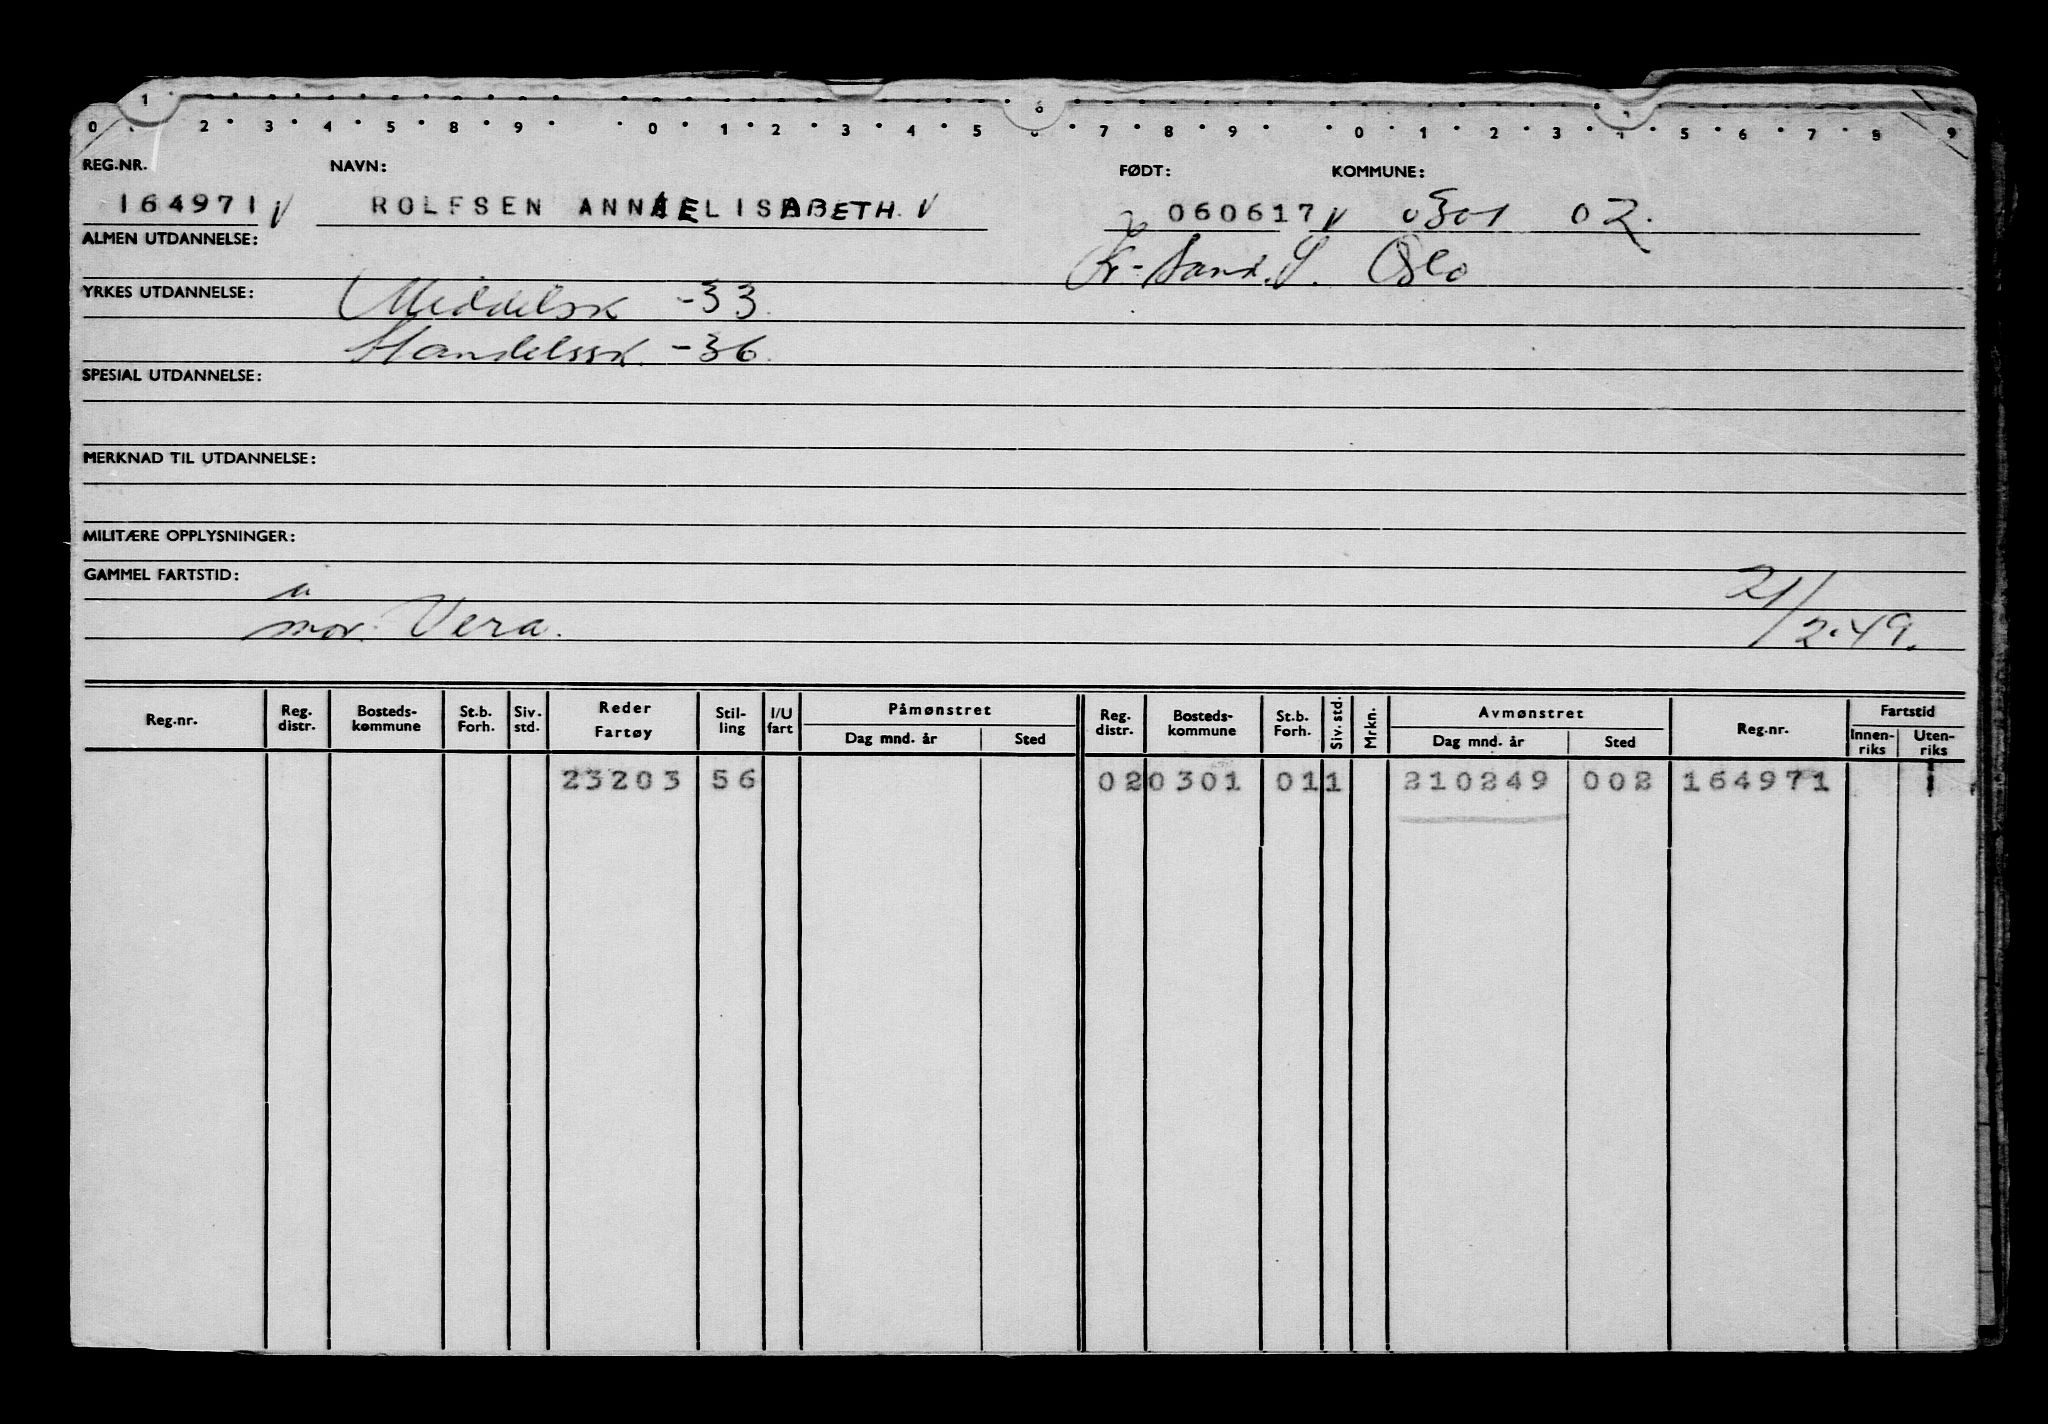 1 6
0 2 3 4 5 8 9 0 1 2 3 4 5 7 8 9 0 1 2 3 5 6 7 8 9
REG.NR. NAVN: FØDT: KOMMUNE:
164971 V ROLFSEN ANNAELISABETH. V 060617 V 0301 02.
ALMEN UTDANNELSE: Kr-Sand. S. Oslo
YRKES UTDANNELSE: Middelsk -33.
Handelssk. -36.
SPESIAL UTDANNELSE:
MERKNAD TIL UTDANNELSE:
MILITÆRE OPPLYSNINGER:
GAMMEL FARTSTID:
mor. Vera. 21/2-49.
Reg.nr. Reg. distr. Bosteds-kommune St.b. Forh. Siv. std. Reder Fartøy Stil-ling I/U fart Påmønstret Dag mnd. år Sted Reg. distr. Bosteds-kommune St.b. Forh. Siv. std. Mrkn. Avmønstret Dag mnd. år Sted Reg.nr. Fartstid Innen-riks Uten-riks
23203 56 02 0301 01 1 210249 002 164971 1